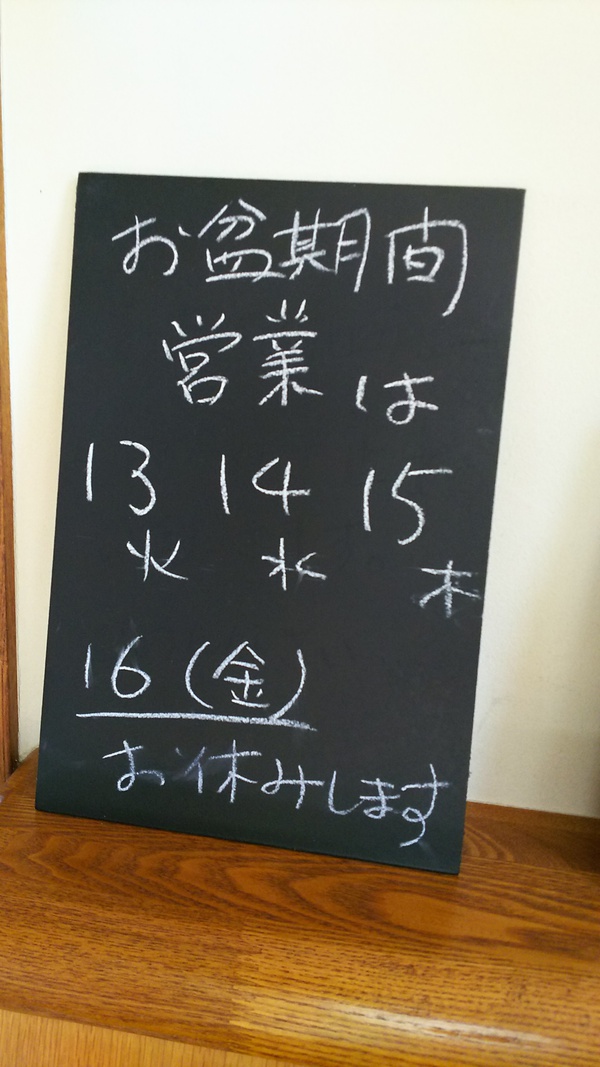 お盆期間
営業は
13 14 15
火 水 木
16(金)
お休みします